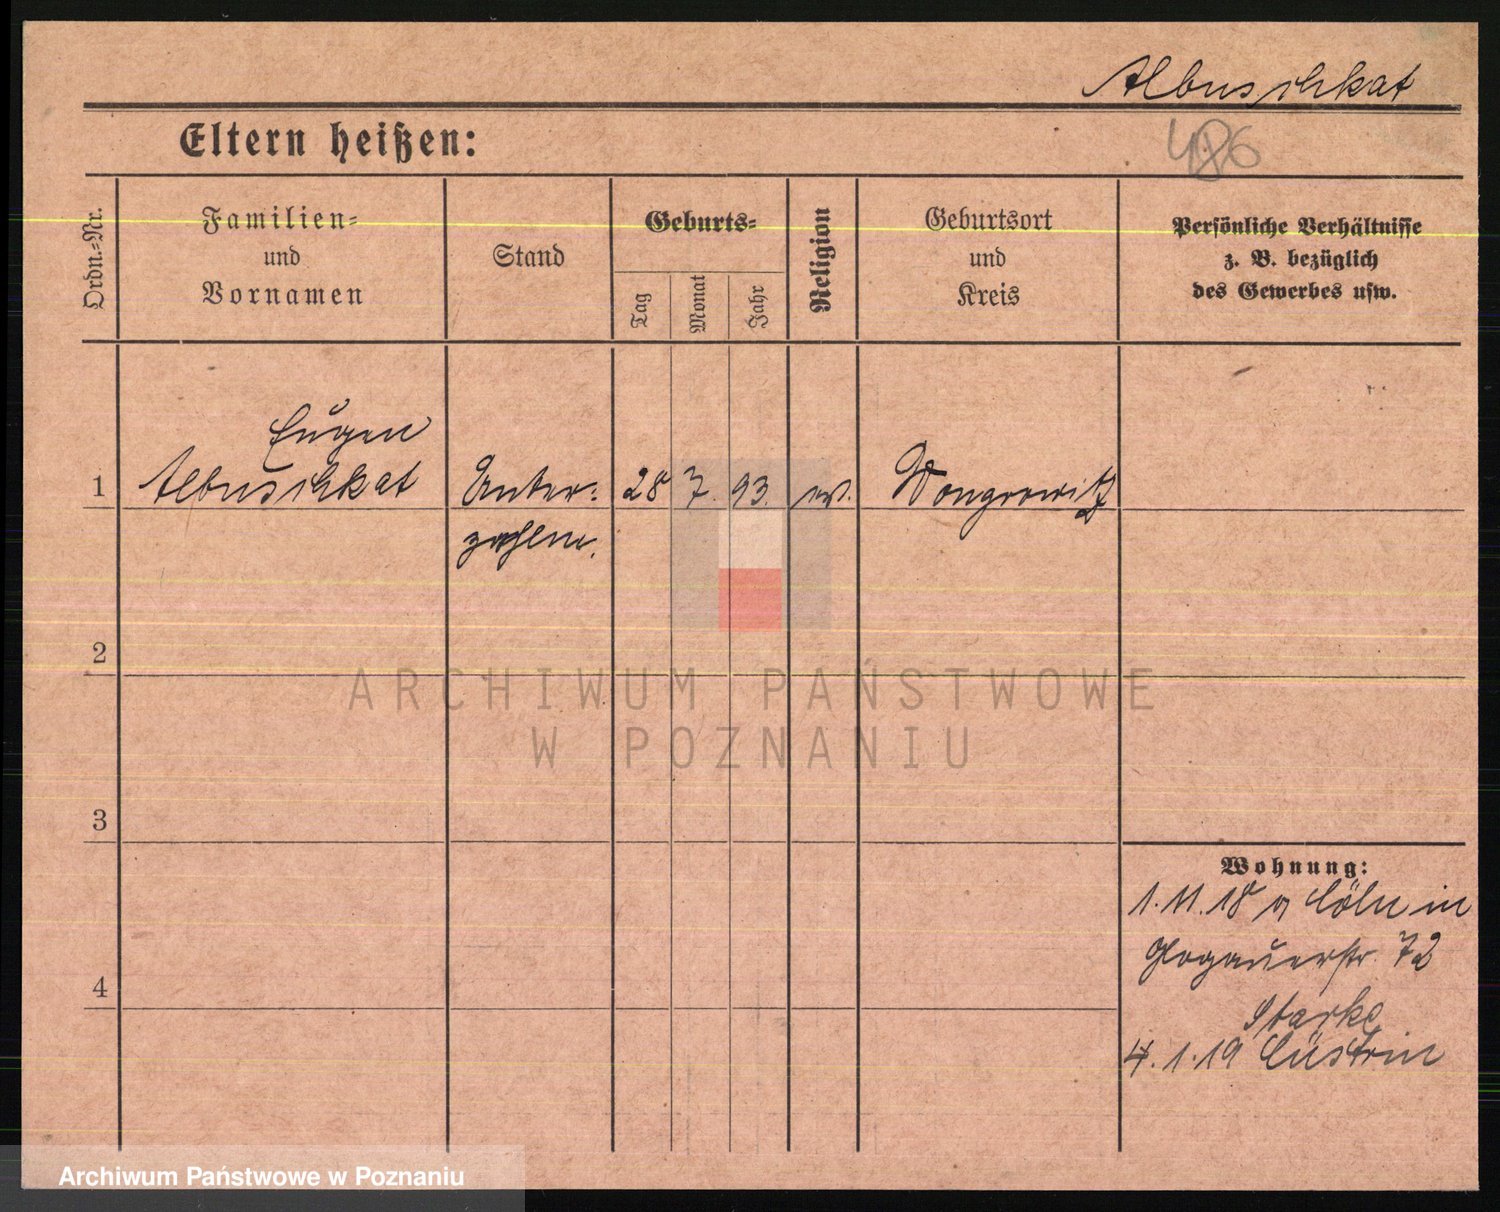 Albuschkat
Eltern heißen:
486
Ordn.-Nr.
Familien-
und
Vornamen
Stand
Geburts-
Tag
Monat
Jahr
Religion
Geburtsort
und
Kreis
Persönliche Verhältnisse
z. B. bezüglich
des Gewerbes usw.
Eugen
1 Albuschkat Unter- 28 7. 93. ev. Wongrowitz
zahlm.
2
ARCHIWUM PAŃSTWOWE
W POZNANIU
3
Wohnung:
1.11.18 Cöln
Glogauerstr. 72
4
Starke
4.1.19 Cüstrin
Archiwum Państwowe w Poznaniu